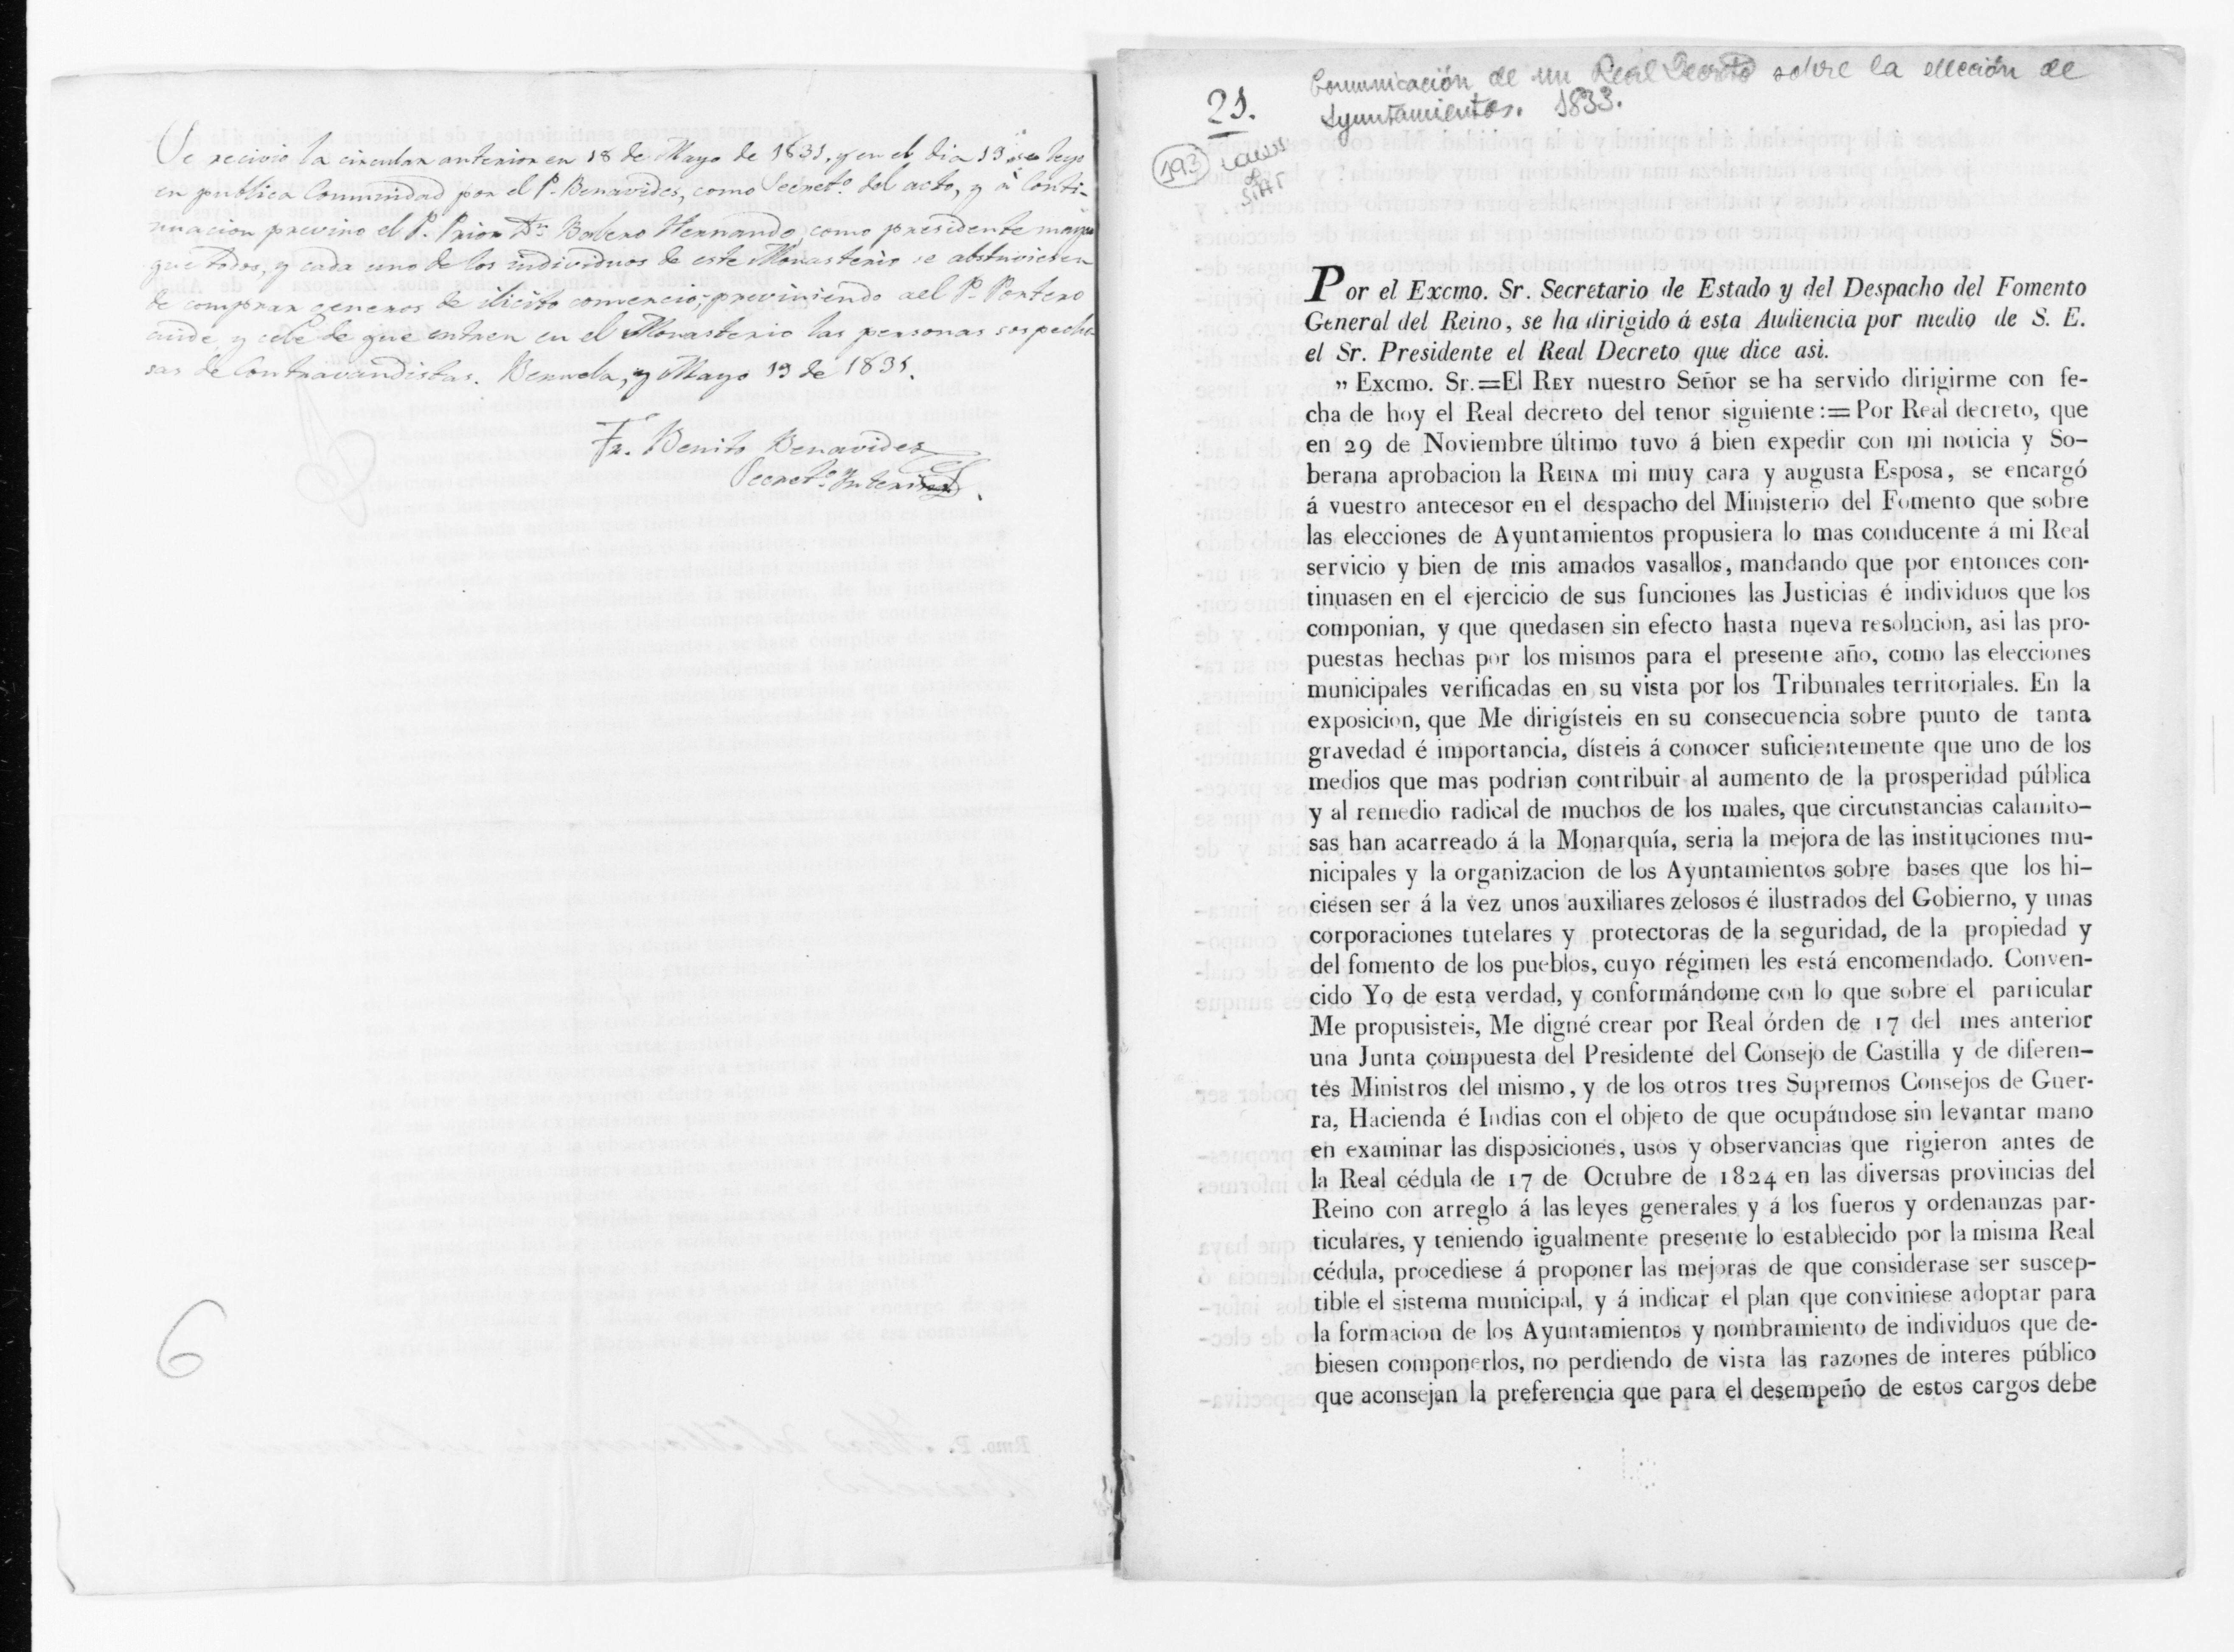 Se recivio la circular anterior en 18 de Mayo de 1831, y en el dia 19 se leyo
en publica Comunidad por el P. Benavides, como Secret.º del acto, y a conti-
nuacion previno el P. Prior Dn. Hernando, como presidente mayor
que todos, y cada uno de los individuos de este Monasterio se abstuviesen
de comprar generos de ilicito comercio; previniendo a el P. Portero
cuide, y cele de que entren en el Monasterio las personas sospecho
sas de Contravandistas. Beruela, y Mayo 19 de 1831.
Fr. Benito Benavides
Secret.º Interino.
6
21.
Comunicación de un Real Decreto sobre la elección de
Ayuntamientos. 1833.
193
Por el Excmo. Sr. Secretario de Estado y del Despacho del Fomento
General del Reino, se ha dirigido á esta Audiencia por medio de S. E.
el Sr. Presidente el Real Decreto que dice asi.
” Excmo. Sr.=El REY nuestro Señor se ha servido dirigirme con fe-
cha de hoy el Real decreto del tenor siguiente:=Por Real decreto, que
en 29 de Noviembre último tuvo á bien expedir con mi noticia y So-
berana aprobacion la REINA mi muy cara y augusta Esposa, se encargó
á vuestro antecesor en el despacho del Ministerio del Fomento que sobre
las elecciones de Ayuntamientos propusiera lo mas conducente á mi Real
servicio y bien de mis amados vasallos, mandando que por entonces con-
tinuasen en el ejercicio de sus funciones las Justicias é individuos que los
componian, y que quedasen sin efecto hasta nueva resolucion, asi las pro-
puestas hechas por los mismos para el presente año, como las elecciones
municipales verificadas en su vista por los Tribunales territoriales. En la
exposicion, que Me dirigísteis en su consecuencia sobre punto de tanta
gravedad é importancia, dísteis á conocer suficientemente que uno de los
medios que mas podrian contribuir al aumento de la prosperidad pública
y al remedio radical de muchos de los males, que circunstancias calamito-
sas han acarreado á la Monarquía, seria la mejora de las instituciones mu-
nicipales y la organizacion de los Ayuntamientos sobre bases que los hi-
ciesen ser á la vez unos auxiliares zelosos é ilustrados del Gobierno, y unas
corporaciones tutelares y protectoras de la seguridad, de la propiedad y
del fomento de los pueblos, cuyo régimen les está encomendado. Conven-
cido Yo de esta verdad, y conformándome con lo que sobre el particular
Me propusisteis, Me digné crear por Real órden de 17 del mes anterior
una Junta compuesta del Presidente del Consejo de Castilla y de diferen-
tes Ministros del mismo, y de los otros tres Supremos Consejos de Guer-
ra, Hacienda é Indias con el objeto de que ocupándose sin levantar mano
en examinar las disposiciones, usos y observancias que rigieron antes de
la Real cédula de 17 de Octubre de 1824 en las diversas provincias del
Reino con arreglo á las leyes generales y á los fueros y ordenanzas par-
ticulares, y teniendo igualmente presente lo establecido por la misma Real
cédula, procediese á proponer las mejoras de que considerase ser suscep-
tible el sistema municipal, y á indicar el plan que conviniese adoptar para
la formacion de los Ayuntamientos y nombramiento de individuos que de-
biesen componerlos, no perdiendo de vista las razones de interes público
que aconsejan la preferencia que para el desempeño de estos cargos debe